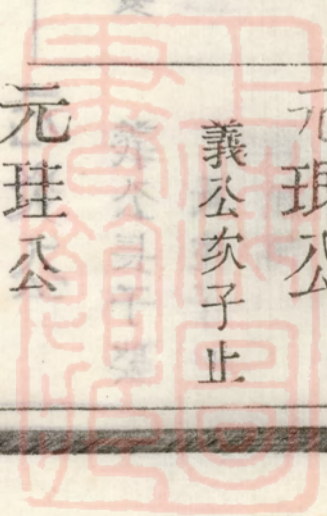 元珢公
義公次子止
元珪公